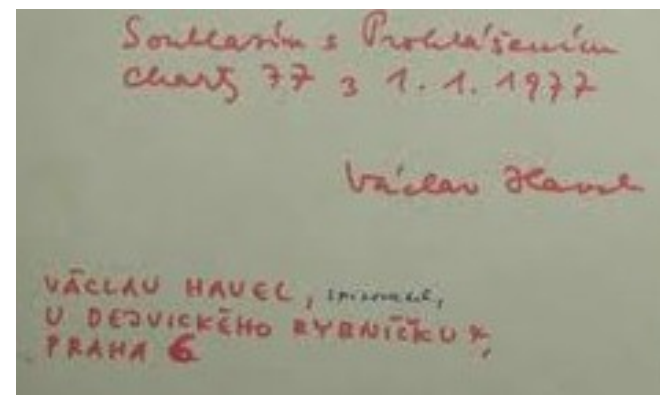 Souhlasím s Prohlášením
Charty 77 z 1.1.1977
Václav Havel
VÁCLAV HAVEL, spisovatel,
U DEJVICKÉHO RYBNÍČKU 4,
PRAHA 6